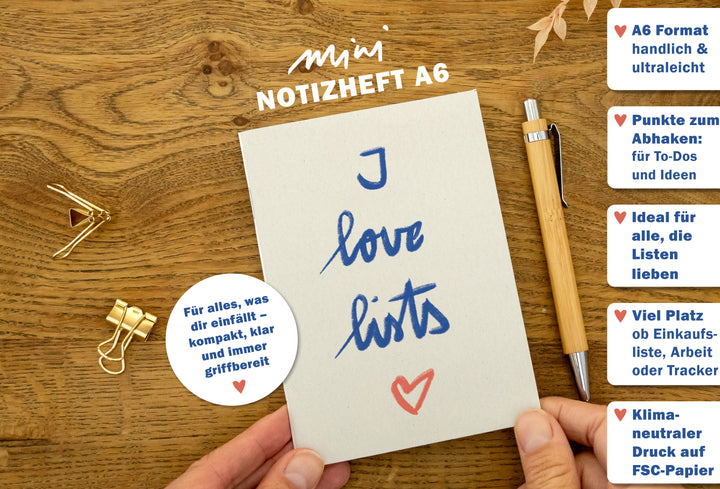 mini
NOTIZHEFT A6
I
love
lists
Für alles, was
dir einfällt –
kompakt, klar
und immer
griffbereit
A6 Format
handlich &
ultraleicht
Punkte zum
Abhaken:
für To-Dos
und Ideen
Ideal für
alle, die
Listen
lieben
Viel Platz
ob Einkaufs-
liste, Arbeit
oder Tracker
Klima-
neutraler
Druck auf
FSC-Papier